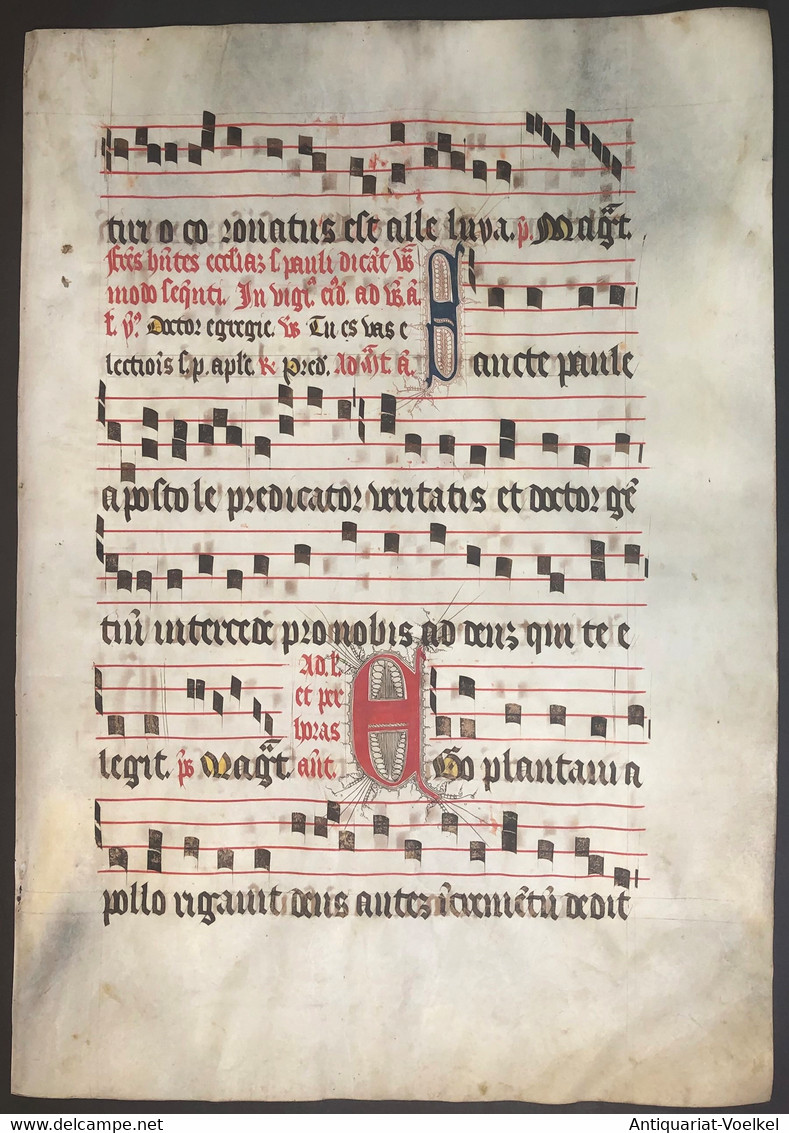 tur o co ronatus est alle luya. p̄. Magt̄.
Fr̄es hn̄tes eccl̄iaz s. pauli dicāt vs̄
modo seqn̄ti. In vigl̄. ad vs̄. ā.
Doctor egregie. vs Tu es vas e
lectiois s. p. apl̄e. R Pred. Ad Mt̄. ā.
Sancte paule
apostole predicator veritatis et doctor gē
tiū intercede pro nobis ad deuz qui te e
Ad. l̄.
et per
horas
legit. ps Magt̄. ant̄. Ego plantaui a
pollo rigauit deus autez īcremētū dedit
Antiquariat-Voelkel
delcampe.net